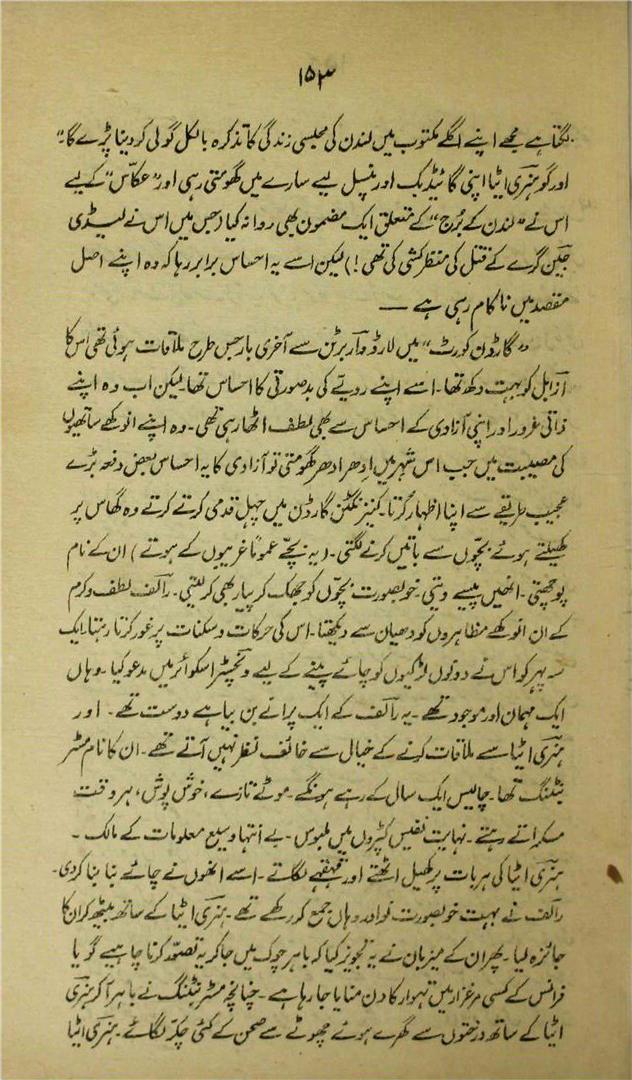 ۱۵۳
لگتا ہے مجھے اپنے اگلے مکتوب میں لندن کی مجلسی زندگی کا تذکرہ بالکل گول کر دینا پڑے گا۔"
اور گو ہنری ایٹا اپنی گائیڈ بک اور پنسل لیے سارے میں گھومتی رہی اور "عکاس" کے لیے
اس نے "لندن کے بُرج" کے متعلق ایک مضمون بھی روانہ کیا (جس میں اس نے لیڈی
جین گرے کے قتل کی منظر کشی کی تھی!) لیکن اسے یہ احساس برابر رہا کہ وہ اپنے اصل
مقصد میں ناکام رہی ہے —
"گارڈن کورٹ" میں لارڈ واربرٹن سے آخری بار جس طرح ملاقات ہوئی تھی اس کا
ازابل کو بہت دکھ تھا۔ اسے اپنے رویے کی بدصورتی کا احساس تھا۔ لیکن اب وہ اپنے
ذاتی غرور اور اپنی آزادی کے احساس سے بھی لطف اٹھا رہی تھی۔ وہ اپنے انوکھے ساتھیوں
کی مصیبت میں جب اس شہر میں ادھر ادھر گھومتی تو آزادی کا یہ احساس بعض دفعہ بڑے
عجیب طریقے سے اپنا اظہار کرتا۔ کنیزنگٹن گارڈن میں چہل قدمی کرتے کرتے وہ گھاس پر
کھیلتے ہوئے بچوں سے باتیں کرنے لگتی۔ (یہ بچے عموماً غریبوں کے ہوتے) ان کے نام
پوچھتی۔ انھیں پیسے دیتی۔ خوبصورت بچوں کو جھک کر پیار بھی کر لیتی۔ رالف لطف و کرم
کے ان انوکھے مظاہروں کو دھیان سے دیکھتا۔ اس کی حرکات و سکنات پر غور کرتا رہتا۔ ایک
سہ پہر کو اس نے دونوں لڑکیوں کو چائے پینے کے لیے ونچسٹر اسکوائر میں مدعو کیا۔ وہاں
ایک مہمان اور موجود تھے۔ یہ رالف کے ایک پرانے بن بیاہے دوست تھے۔ اور
ہنری ایٹا سے ملاقات کرنے کے خیال سے خائف نظر نہیں آتے تھے۔ ان کا نام مسٹر
بنٹلنگ تھا۔ چالیس ایک سال کے رہے ہونگے۔ موٹے تازے، خوش پوش، ہر وقت
مسکراتے رہتے۔ نہایت نفیس کپڑوں میں ملبوس۔ بے انتہا وسیع معلومات کے مالک۔
ہنری ایٹا کی ہر بات پر کھیل اٹھتے اور قہقہے لگاتے۔ اسے انھوں نے چائے بنا بنا کر دی۔
رالف نے بہت خوبصورت نوادر وہاں جمع کر رکھے تھے۔ ہنری ایٹا کے ساتھ بیٹھ کر ان کا
جائزہ لیا۔ پھر ان کے میزبان نے یہ تجویز کیا کہ باہر چوک میں جا کر یہ تصور کرنا چاہیے گویا
فرانس کے کسی مرغزار میں تہوار کا دن منایا جا رہا ہے۔ چنانچہ مسٹر بنٹلنگ نے باہر آ کر ہنری
ایٹا کے ساتھ درختوں سے گھرے ہوئے چھوٹے سے صحن کے کئی چکر لگائے۔ ہنری ایٹا